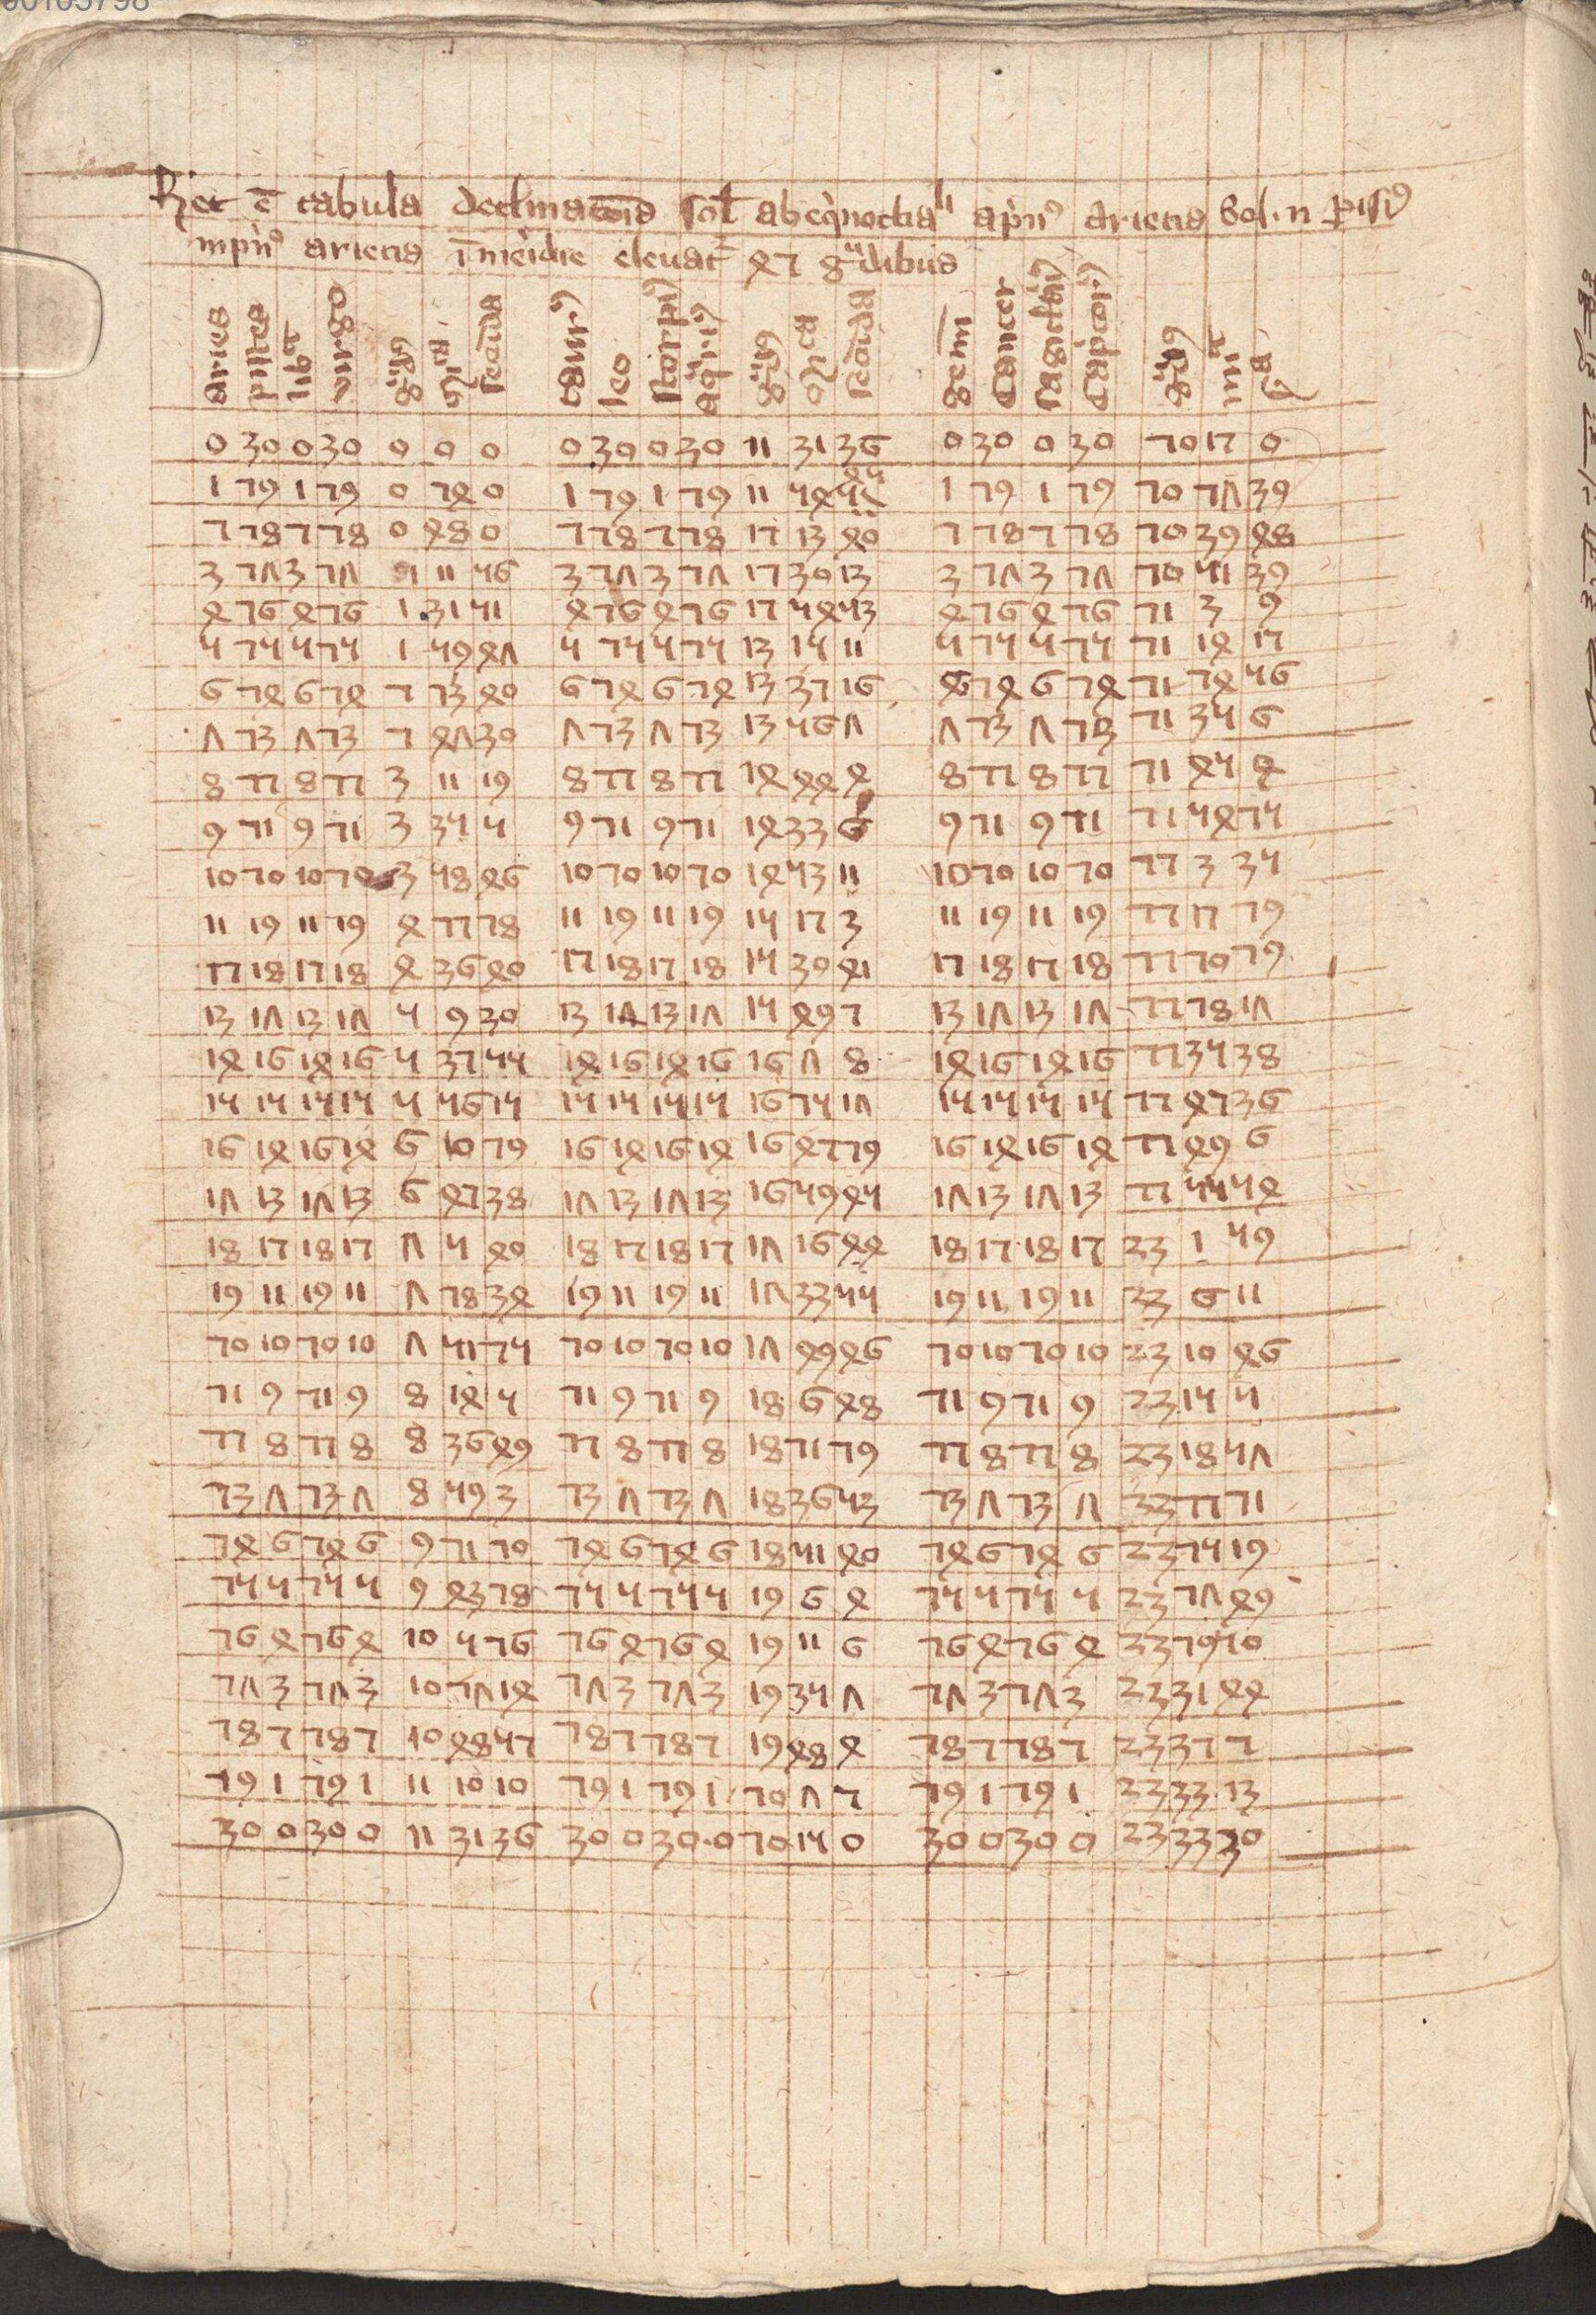 Hec ē tabula declinacōis sol' ab eq̇noctiali a pͥn° arietis Sol n pisc
in pͥn° arietis ī meͥdie eleuat' 42 gͣdibus
aries pisces libͣ virgo gͣdꝰ mͥta secūda taurꝰ leo scorpiꝰ aqͣriꝰ gͣdꝰ mͥta secūda gemī cancer sagittͣiꝰ capͥcorꝰ gͣdꝰ
0 30 0 30 0 0 0 0 30 0 30 11 31 36 0 30 0 30 20 12 0
1 29 1 29 0 24 0 1 29 1 29 11 54 1 29 1 29 20 27 39
2 28 2 28 0 48 0 2 28 2 28 12 13 40 2 28 2 28 20 39 48
3 27 3 27 1 11 56 3 27 3 27 12 30 13 3 27 3 27 20 51 39
4 26 4 26 1 31 51 4 26 4 26 12 54 53 4 26 4 26 21 3 9
5 25 5 25 1 59 47 5 25 5 25 13 15 11 5 25 5 25 21 14 12
6 24 6 24 2 23 40 6 24 6 24 13 32 16 6 24 6 24 21 24 56
7 23 7 23 2 47 30 7 23 7 23 13 56 7 7 23 7 23 21 35 6
8 22 8 22 3 11 19 8 22 8 22 14 44 4 8 22 8 22 21 45 4
9 21 9 21 3 35 5 9 21 9 21 14 33 6 9 21 9 21 21 54 25
10 20 10 20 3 58 46 10 20 10 20 14 53 11 10 20 10 20 22 3 35
11 19 11 29 4 22 28 11 19 11 19 15 12 3 11 19 11 19 22 12 29
12 18 12 18 4 36 40 12 18 12 18 15 30 41 12 18 12 18 22 20 29
13 17 13 17 5 9 30 13 17 13 17 15 49 2 13 17 13 17 22 28 17
14 16 14 16 5 32 55 14 16 14 16 16 7 8 14 16 14 16 22 35 38
15 15 15 15 5 56 15 15 15 15 15 16 25 17 15 15 15 15 22 42 36
16 14 16 14 6 10 29 16 14 16 14 16 42 29 16 14 16 14 22 49 6
17 13 17 13 6 42 38 17 13 17 13 16 59 45 17 13 17 13 22 55 54
18 12 18 12 7 5 40 18 12 18 12 17 16 44 18 12 18 12 23 1 59
19 11 19 11 7 28 34 19 11 19 11 17 33 55 19 11 19 11 23 6 11
20 10 20 10 7 51 25 20 10 20 10 17 49 46 20 10 20 10 23 10 46
21 9 21 9 8 14 5 21 9 21 9 18 6 48 21 9 21 9 23 15 5
22 8 22 8 8 36 49 22 8 22 8 18 21 29 22 8 22 8 23 18 57
23 7 23 7 8 59 3 23 7 23 7 18 36 53 23 7 23 7 23 22 21
24 6 24 6 9 21 20 24 6 24 6 18 51 40 24 6 24 6 23 25 19
25 5 25 5 9 43 28 25 5 25 5 19 6 4 25 5 25 5 23 27 49
26 4 26 4 10 5 26 26 4 26 4 19 11 6 26 4 26 4 23 29 10
27 3 27 3 10 27 14 27 3 27 3 19 35 7 27 3 27 3 23 31 44
28 2 28 2 10 48 52 28 2 28 2 19 48 4 28 2 28 2 23 32 2
29 1 29 1 11 10 10 29 1 29 1 20 7 2 29 1 29 1 23 33 13
30 0 30 0 11 31 36 30 0 30 0 20 15 0 30 0 30 0 23 33 30